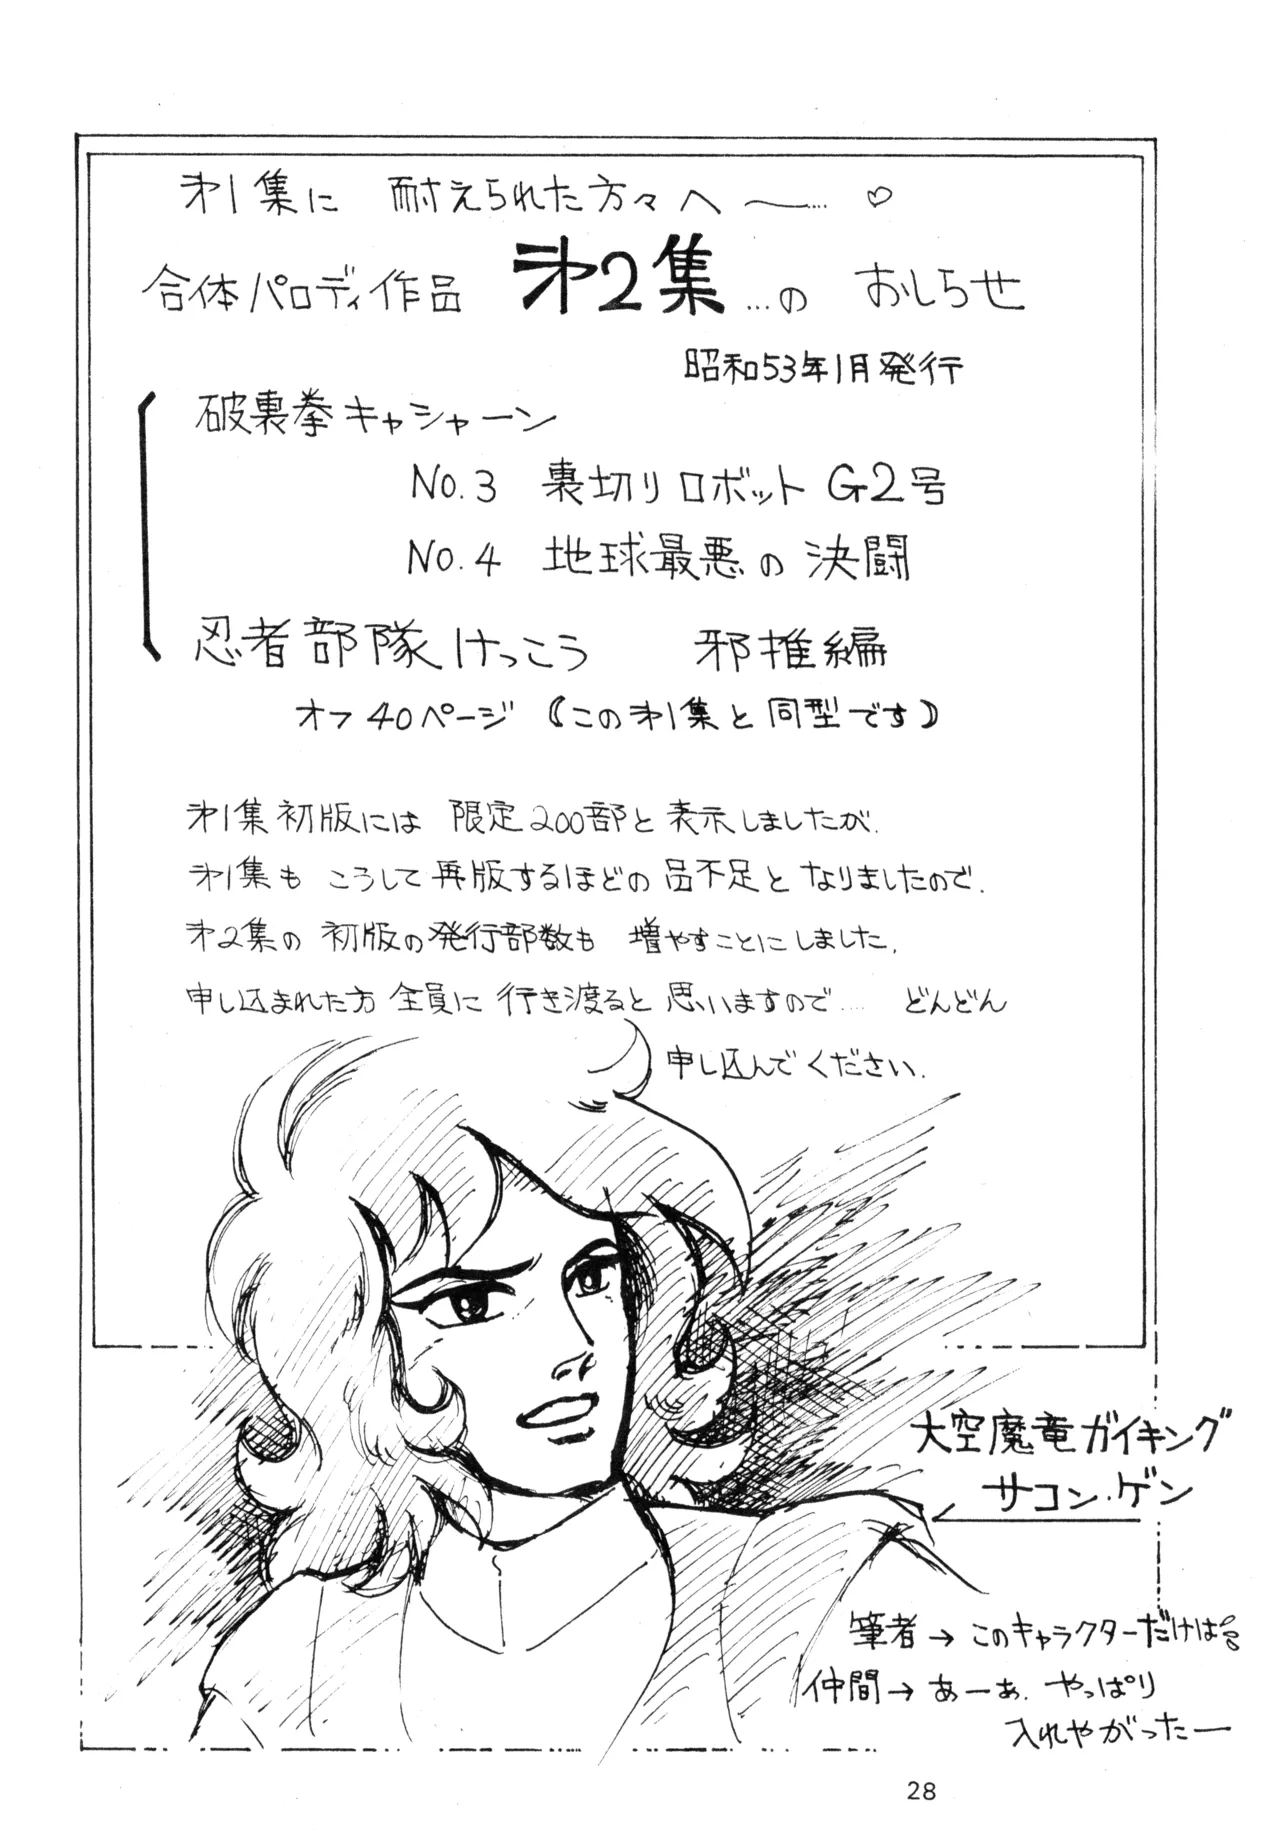 才1集に 耐えられた方々へ 〜…… ♡
合体パロディ作品 才2集…の おしらせ
昭和53年1月発行
破裏拳キャシャーン
No.3 裏切りロボット G2号
No.4 地球最悪の決闘
忍者部隊けっこう 邪推編
オフ40ページ (この才1集と同型です)
才1集初版には 限定200部と 表示しましたが、
才1集も こうして再版するほどの 品不足と なりましたので、
才2集の 初版の発行部数も 増やすことにしました。
申し込まれた方 全員に 行き渡ると 思いますので…… どんどん
申し込んでください。
大空魔竜ガイキング
サコン・ゲン
筆者→このキャラクターだけは
仲間→あーあ、やっぱり
入れやがったー
28